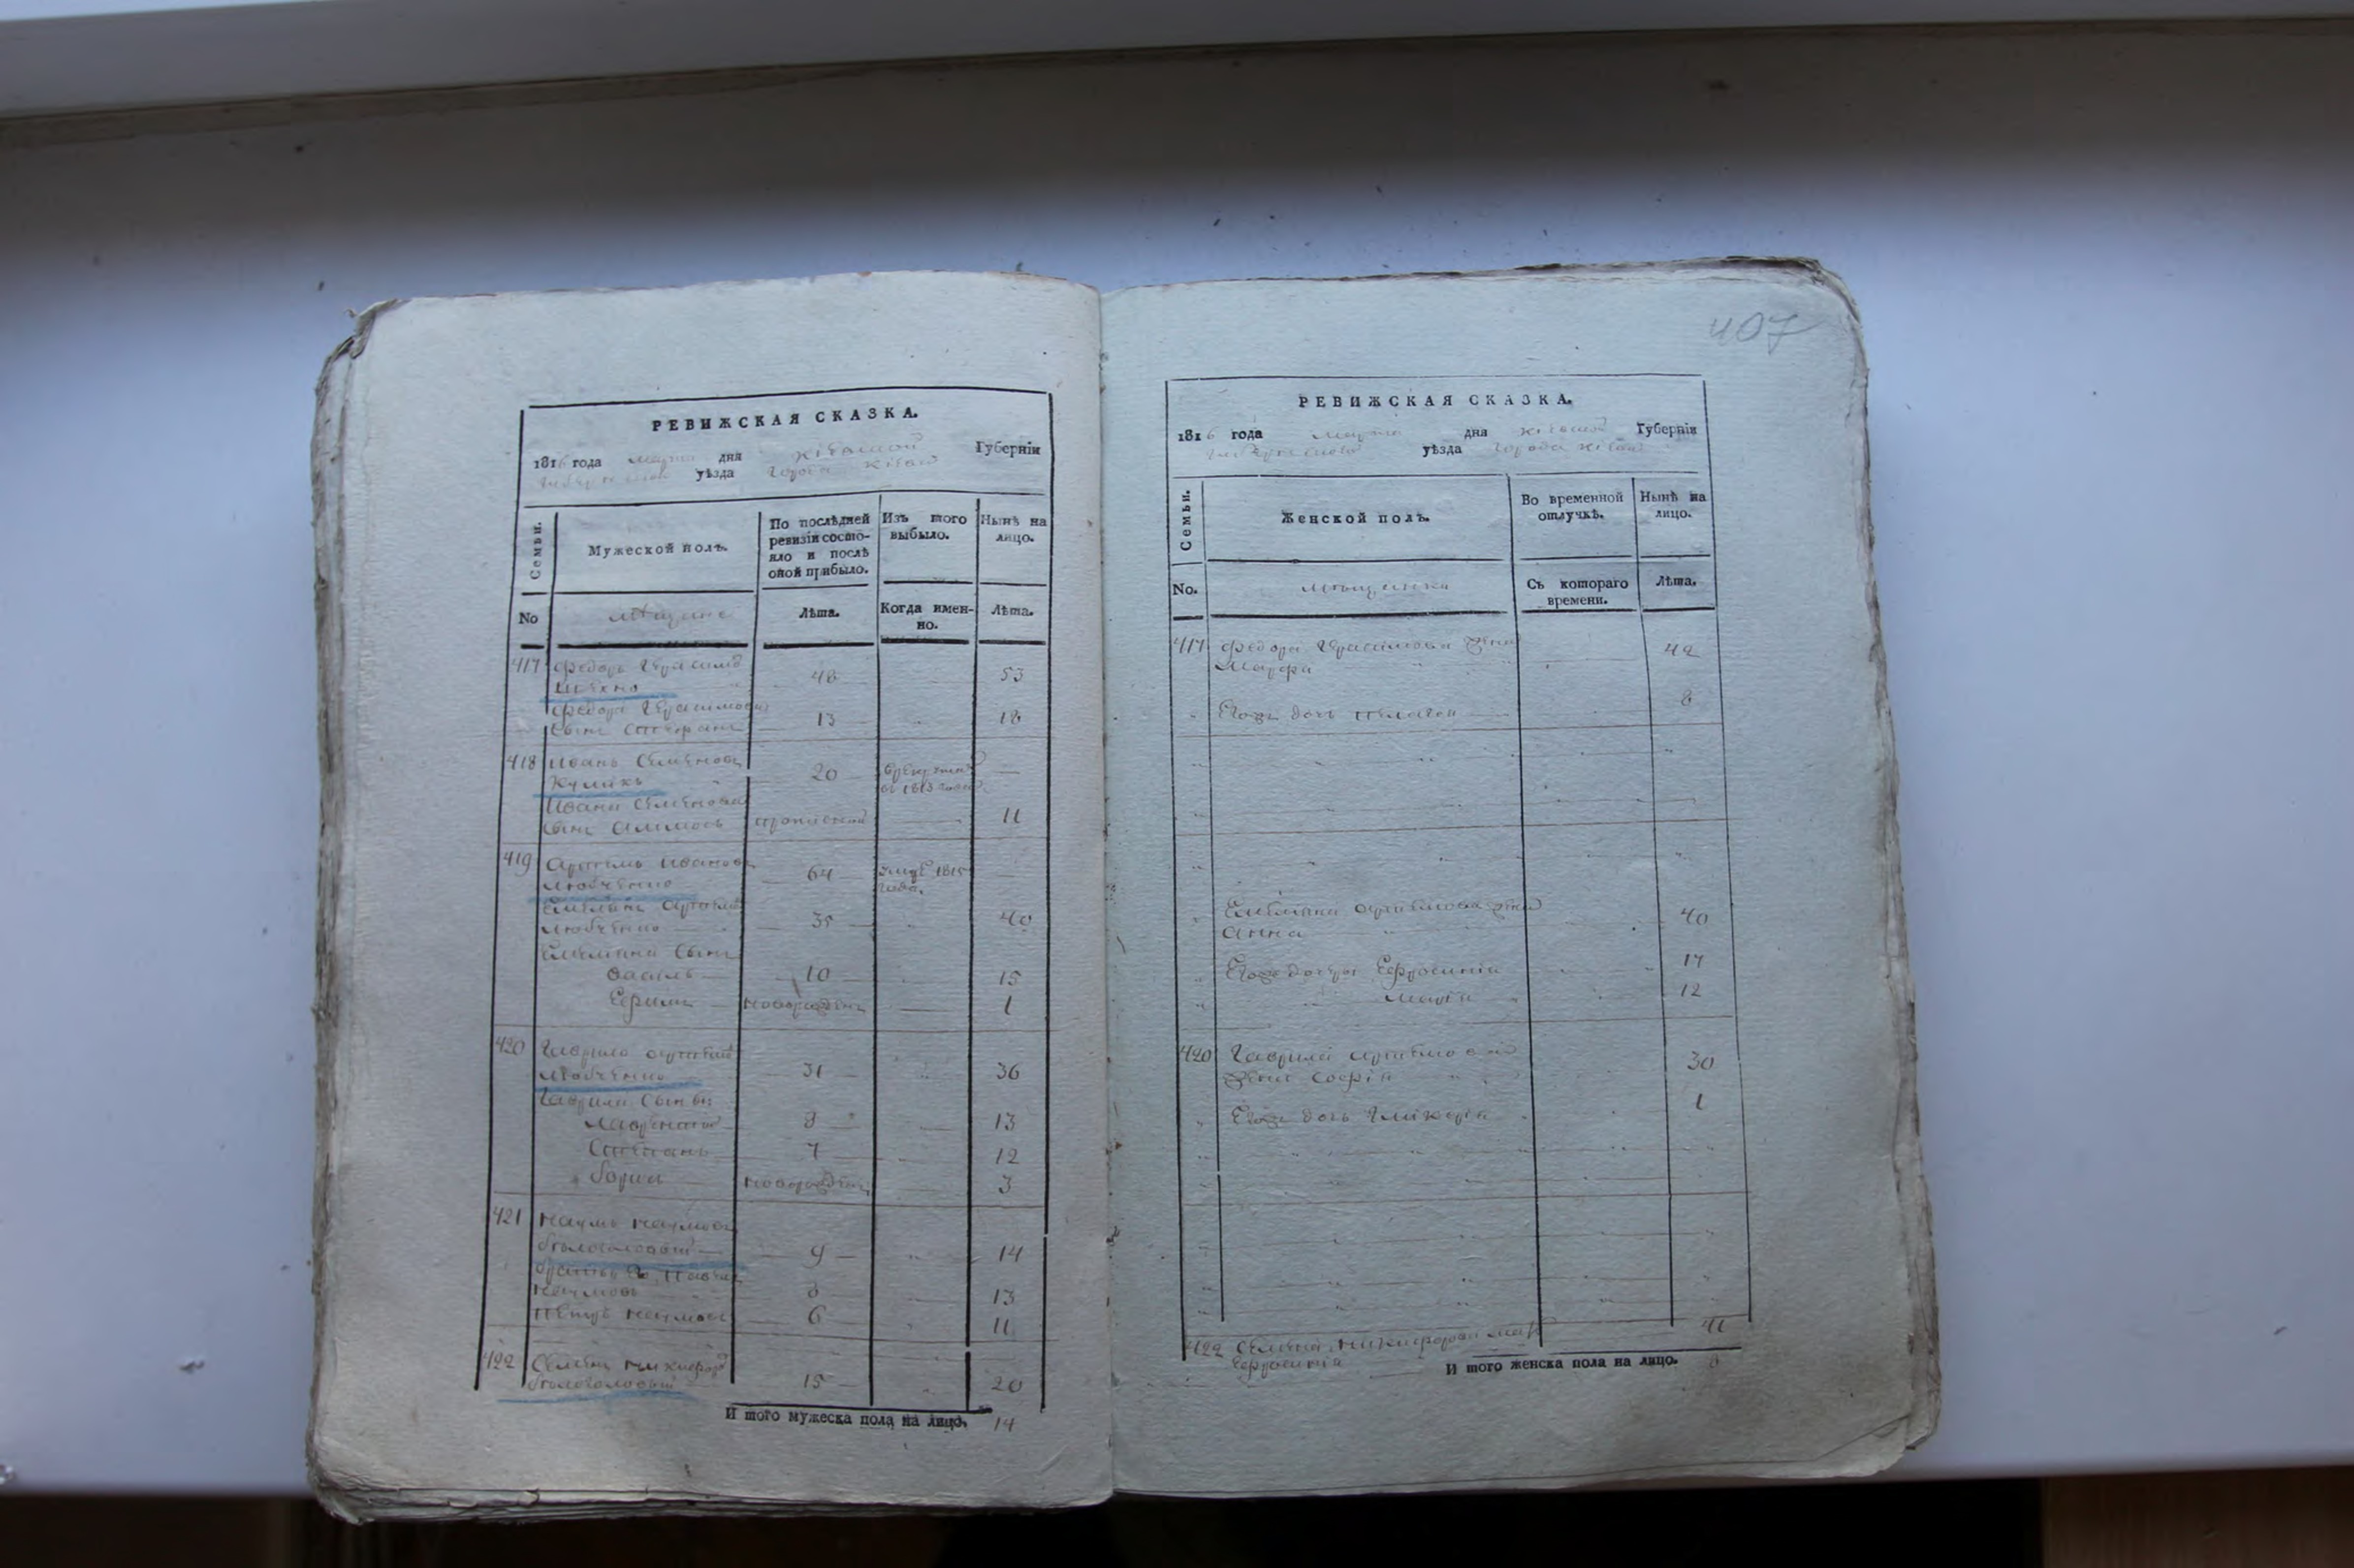 РЕВИЖСКАЯ СКАЗКА.
1816 года марта дня Кіевской Губерніи
уѣзда Города Кіева
Семьи.
Мужеской полъ.
По послѣдней ревизіи состояло и послѣ оной прибыло.
Изъ того выбыло.
Нынѣ на лицо.
No
мѣщане
Лѣта.
Когда именно.
Лѣта.
417 Федоръ Герасимовъ
48 53
Федора Герасимова
сынъ Стефанъ 13 18
418 Иванъ Семеновъ
Куликъ 20
въ 1813 года
Ивана Семенова
сынъ 11
419 Артемъ Ивановъ
Любченко 64 умре 1815 года.
Емельянъ Артемовъ
Любченко 35 40
Емельяна сынъ
Василь 10 15
Ефимъ новорожденъ 1
420 Гаврило Артемовъ
Любченко 31 36
Гаврила сыны
Лаврентій 8 13
Степанъ 7 12
Борис новорожденъ 3
421 Наумъ Наумовъ
Бѣлоголовый 9 14
братья Его Павелъ
Наумовъ 8 13
Петръ Наумовъ 6 11
422 Семенъ Никифоровъ
Бѣлоголовый 15 20
И того мужеска пола на лицо. 14
407
РЕВИЖСКАЯ СКАЗКА.
1816 года марта дня Кіевской Губерніи
уѣзда Города Кіева
Семьи.
Женской полъ.
Во временной отлучкѣ.
Нынѣ на лицо.
No.
мѣщанки
Съ котораго времени.
Лѣта.
417 Федора Герасимова жена
Марфа 42
Егоже дочь Пелагея 8
Емельяна Артемова жена
Анна 40
Егоже дочери Ефросинія 17
Марія 12
420 Гаврила Артемова
жена Софія 30
Егоже дочь Гликерія 1
422 Семена Никифорова мать
Ефросинія 41
И того женска пола на лицо. 8